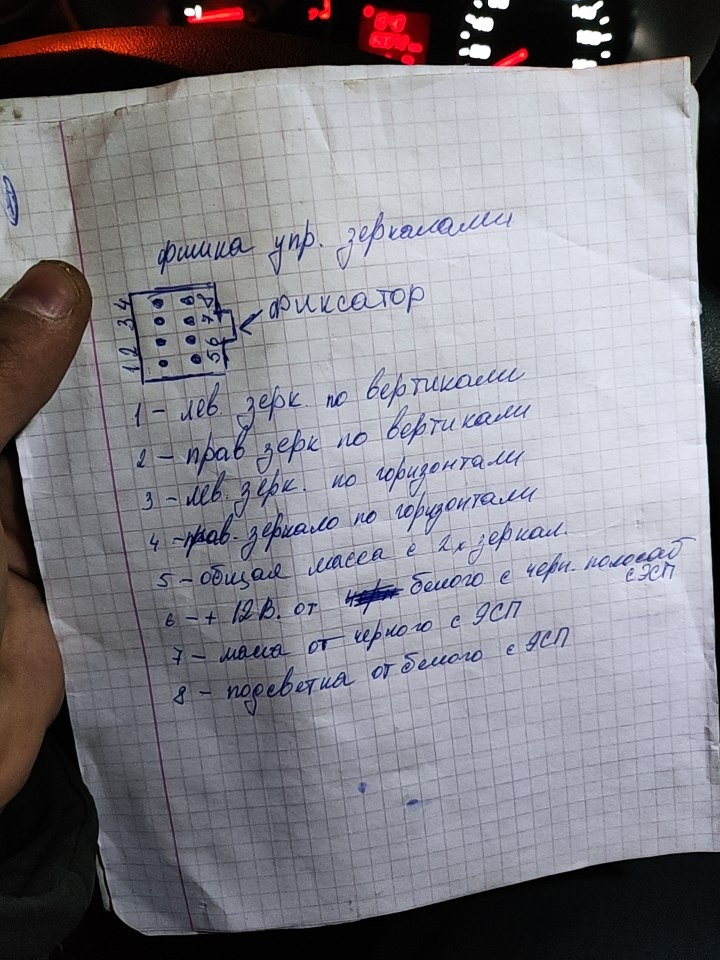 фишка упр. зеркалами
1 2 3 4
5 6 7 8
фиксатор
1 – лев. зерк. по вертикали
2 – прав зерк по вертикали
3 – лев. зерк. по горизонтали
4 – прав. зеркало по горизонтали
5 – общая масса с 2х зеркал.
6 – + 12В. от белого с черн. полосой
с ЭСП
7 – масса от черного с ЭСП
8 – подсветка от белого с ЭСП